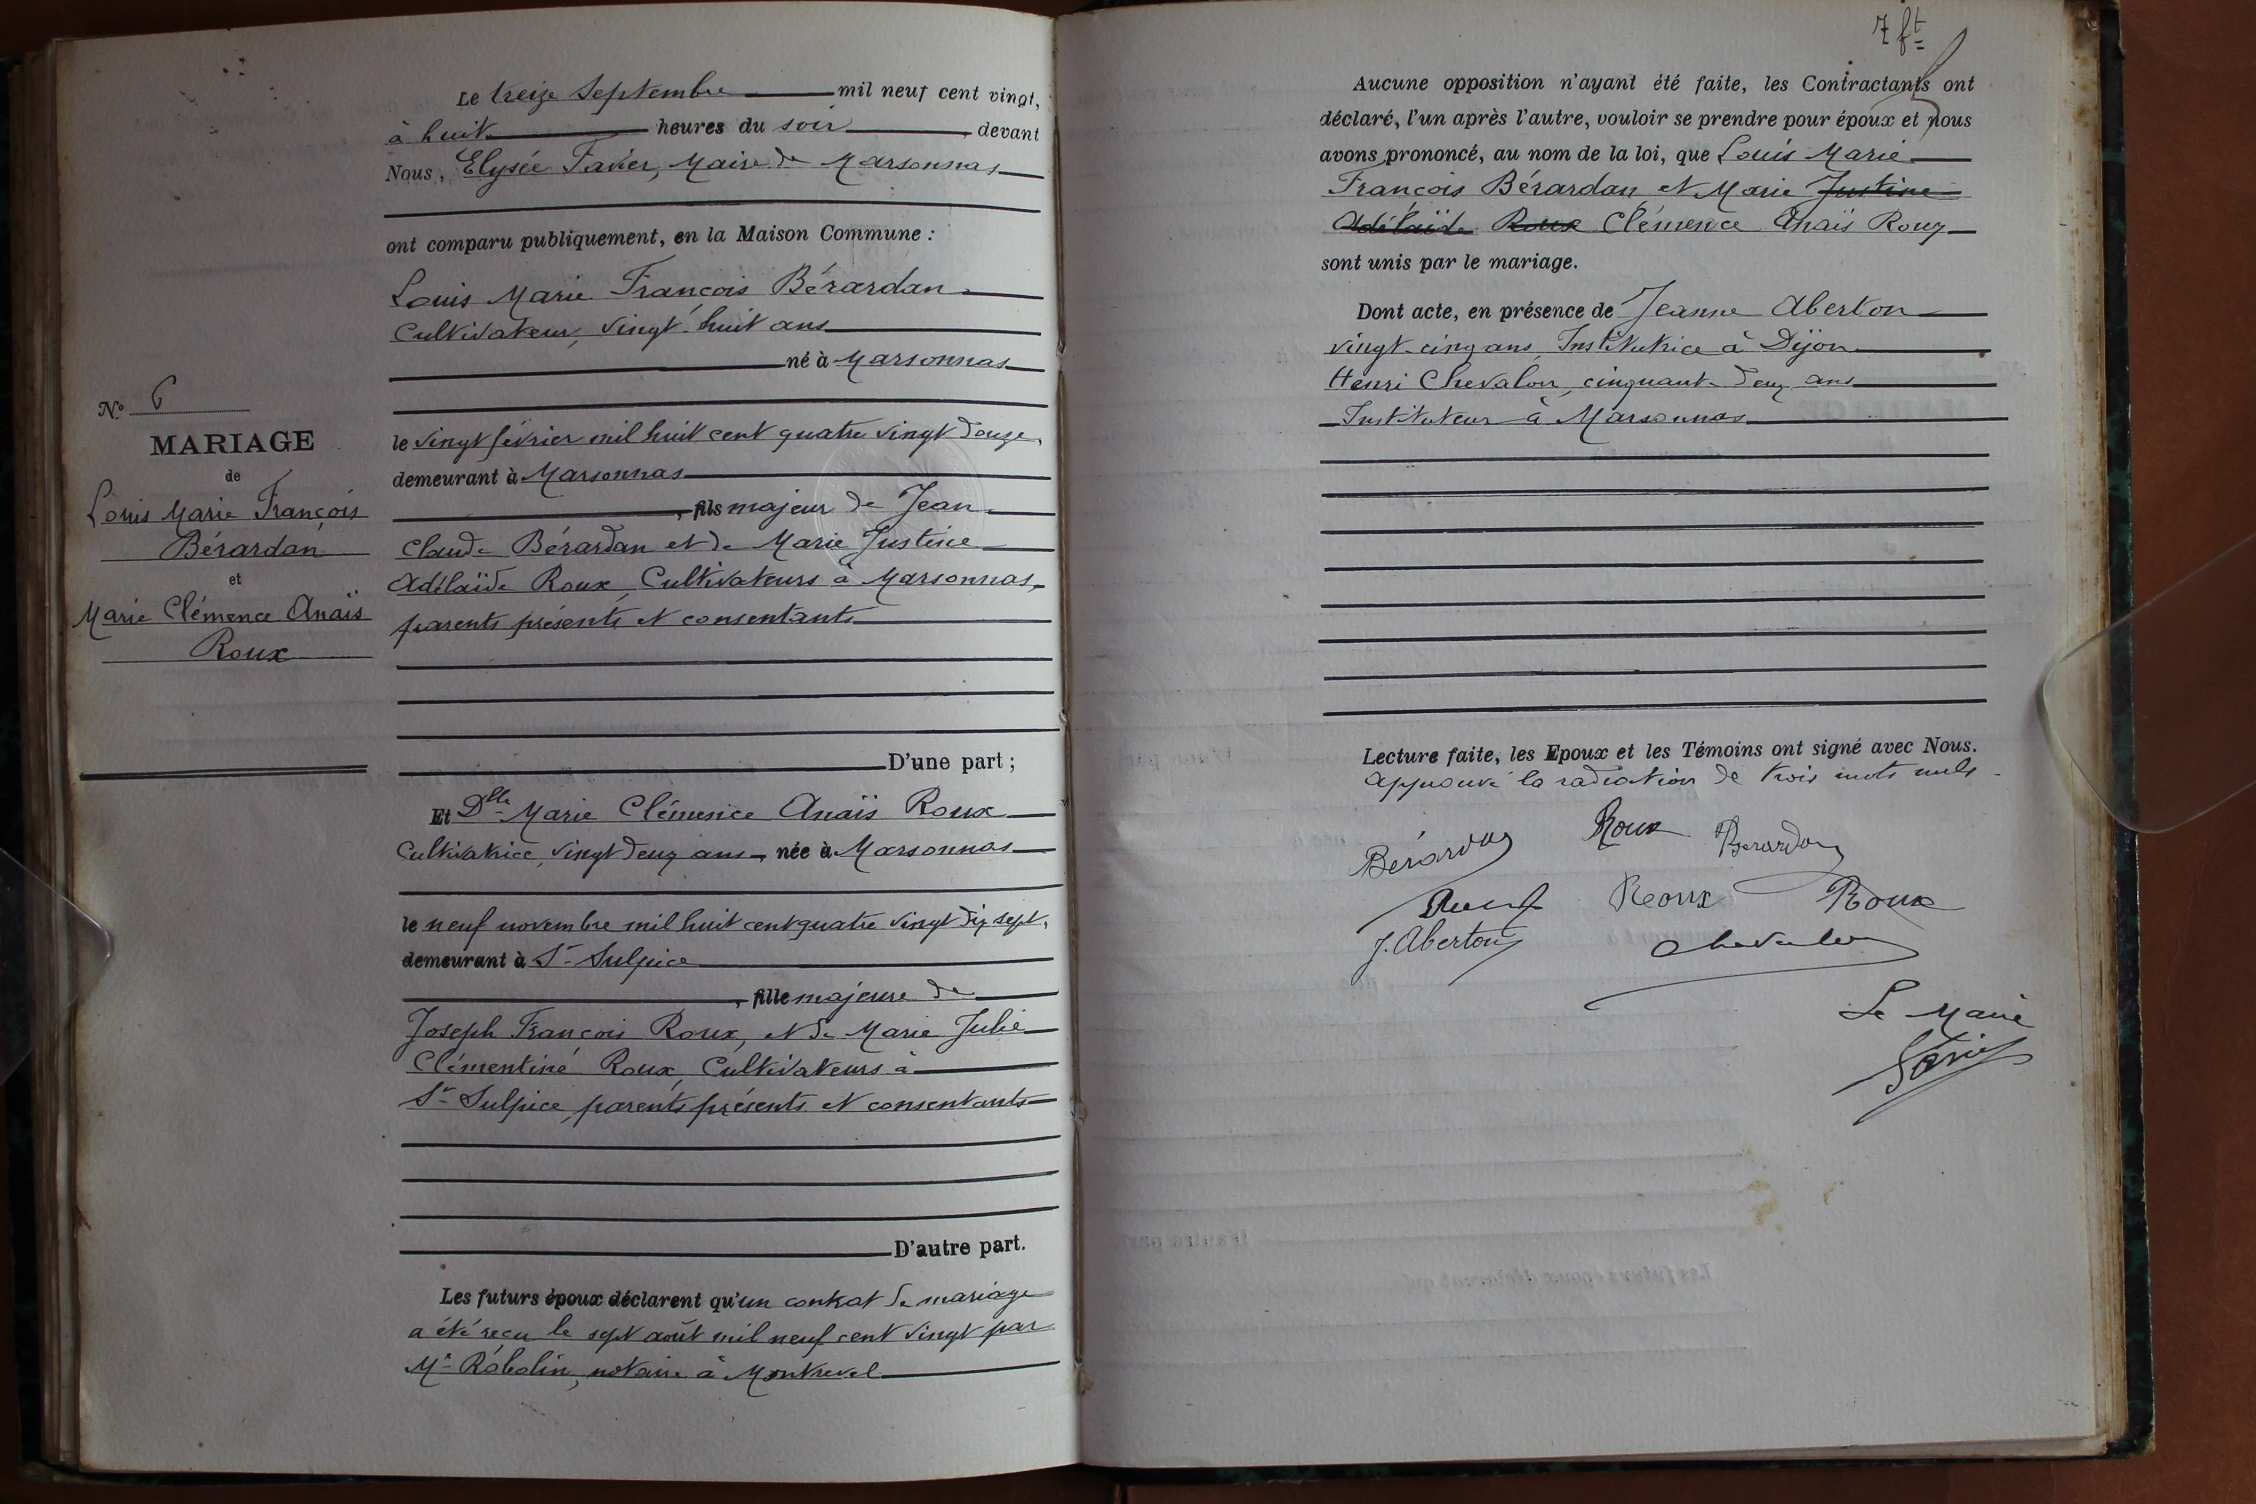 N° 6
MARIAGE
de
Louis Marie François
Bérardan
et
Marie Clémence Anaïs
Roux
Le treize Septembre mil neuf cent vingt,
à huit heures du soir, devant
Nous, Elysée Favier, Maire de Marsonnas
ont comparu publiquement, en la Maison Commune :
Louis Marie François Bérardan
Cultivateur, vingt-huit ans
né à Marsonnas
le vingt février mil huit cent quatre vingt douze,
demeurant à Marsonnas
, fils majeur de Jean
Claude Bérardan et de Marie Justine
Adélaïde Roux, Cultivateurs à Marsonnas,
parents présents et consentants
D'une part ;
Et Dlle Marie Clémence Anaïs Roux
Cultivatrice, vingt deux ans, née à Marsonnas
le neuf novembre mil huit cent quatre vingt dix sept,
demeurant à St Sulpice
, fille majeure de
Joseph François Roux, et de Marie Julie
Clémentine Roux, Cultivateurs à
St Sulpice, parents présents et consentants
D'autre part.
Les futurs époux déclarent qu'un contrat de mariage
a été reçu le sept août mil neuf cent vingt par
Me Robolin, notaire à Montrevel
7 ft
Aucune opposition n'ayant été faite, les Contractants ont
déclaré, l'un après l'autre, vouloir se prendre pour époux et nous
avons prononcé, au nom de la loi, que Louis Marie
François Bérardan et Marie Justine
Adélaïde Roux Clémence Anaïs Roux
sont unis par le mariage.
Dont acte, en présence de Jeanne Aberton
vingt-cinq ans, Institutrice à Dijon
Henri Chevalon, cinquante-deux ans
Instituteur à Marsonnas
Lecture faite, les Epoux et les Témoins ont signé avec Nous.
Approuvé la radiation de trois mots nuls
Bérardan Roux Berardan
Roux Roux
J. Aberton Chevalon
Le Maire
Favier